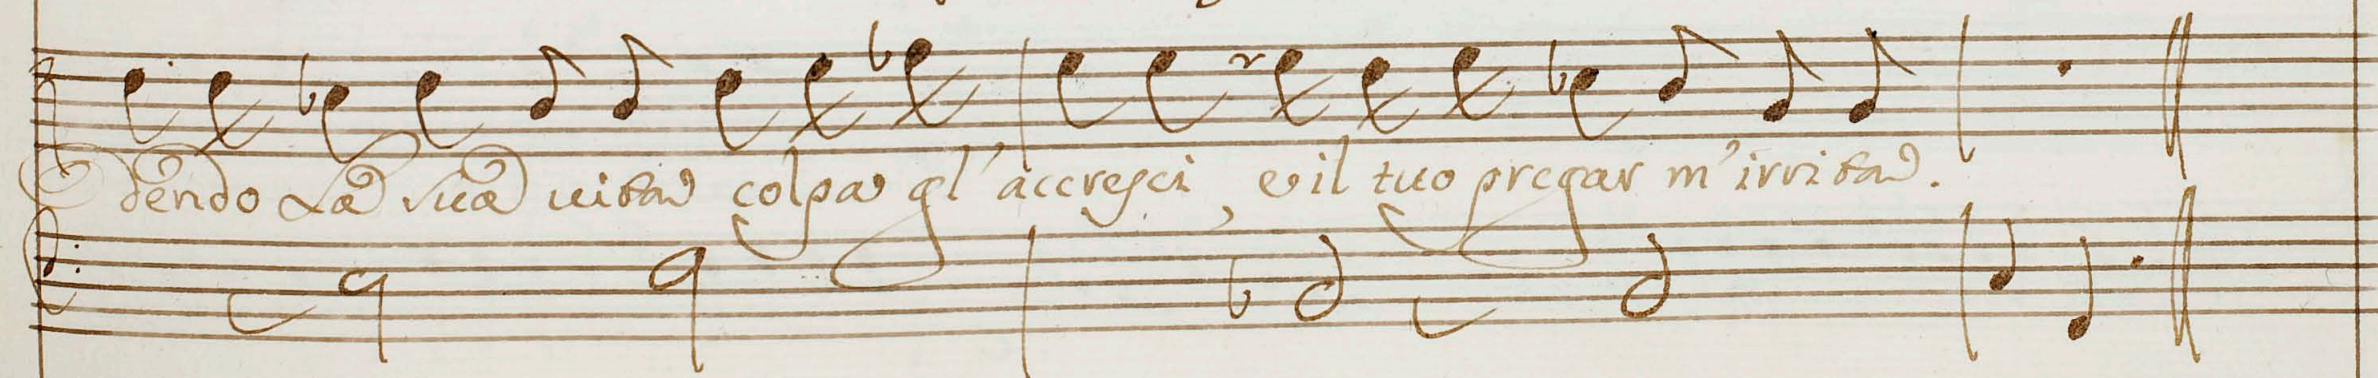 dendo La sua vita colpa gl'accresci, e il tuo pregar m'irrita.